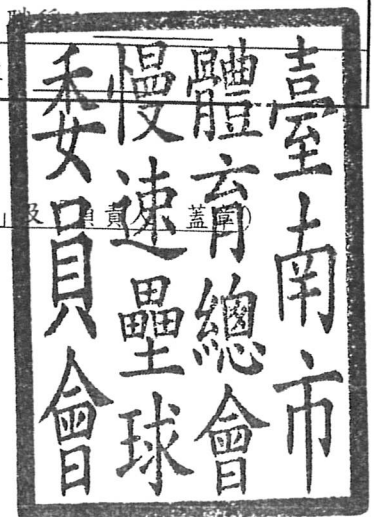 臺南市
體育總會
慢速壘球
委員會
及
負責人
蓋章)